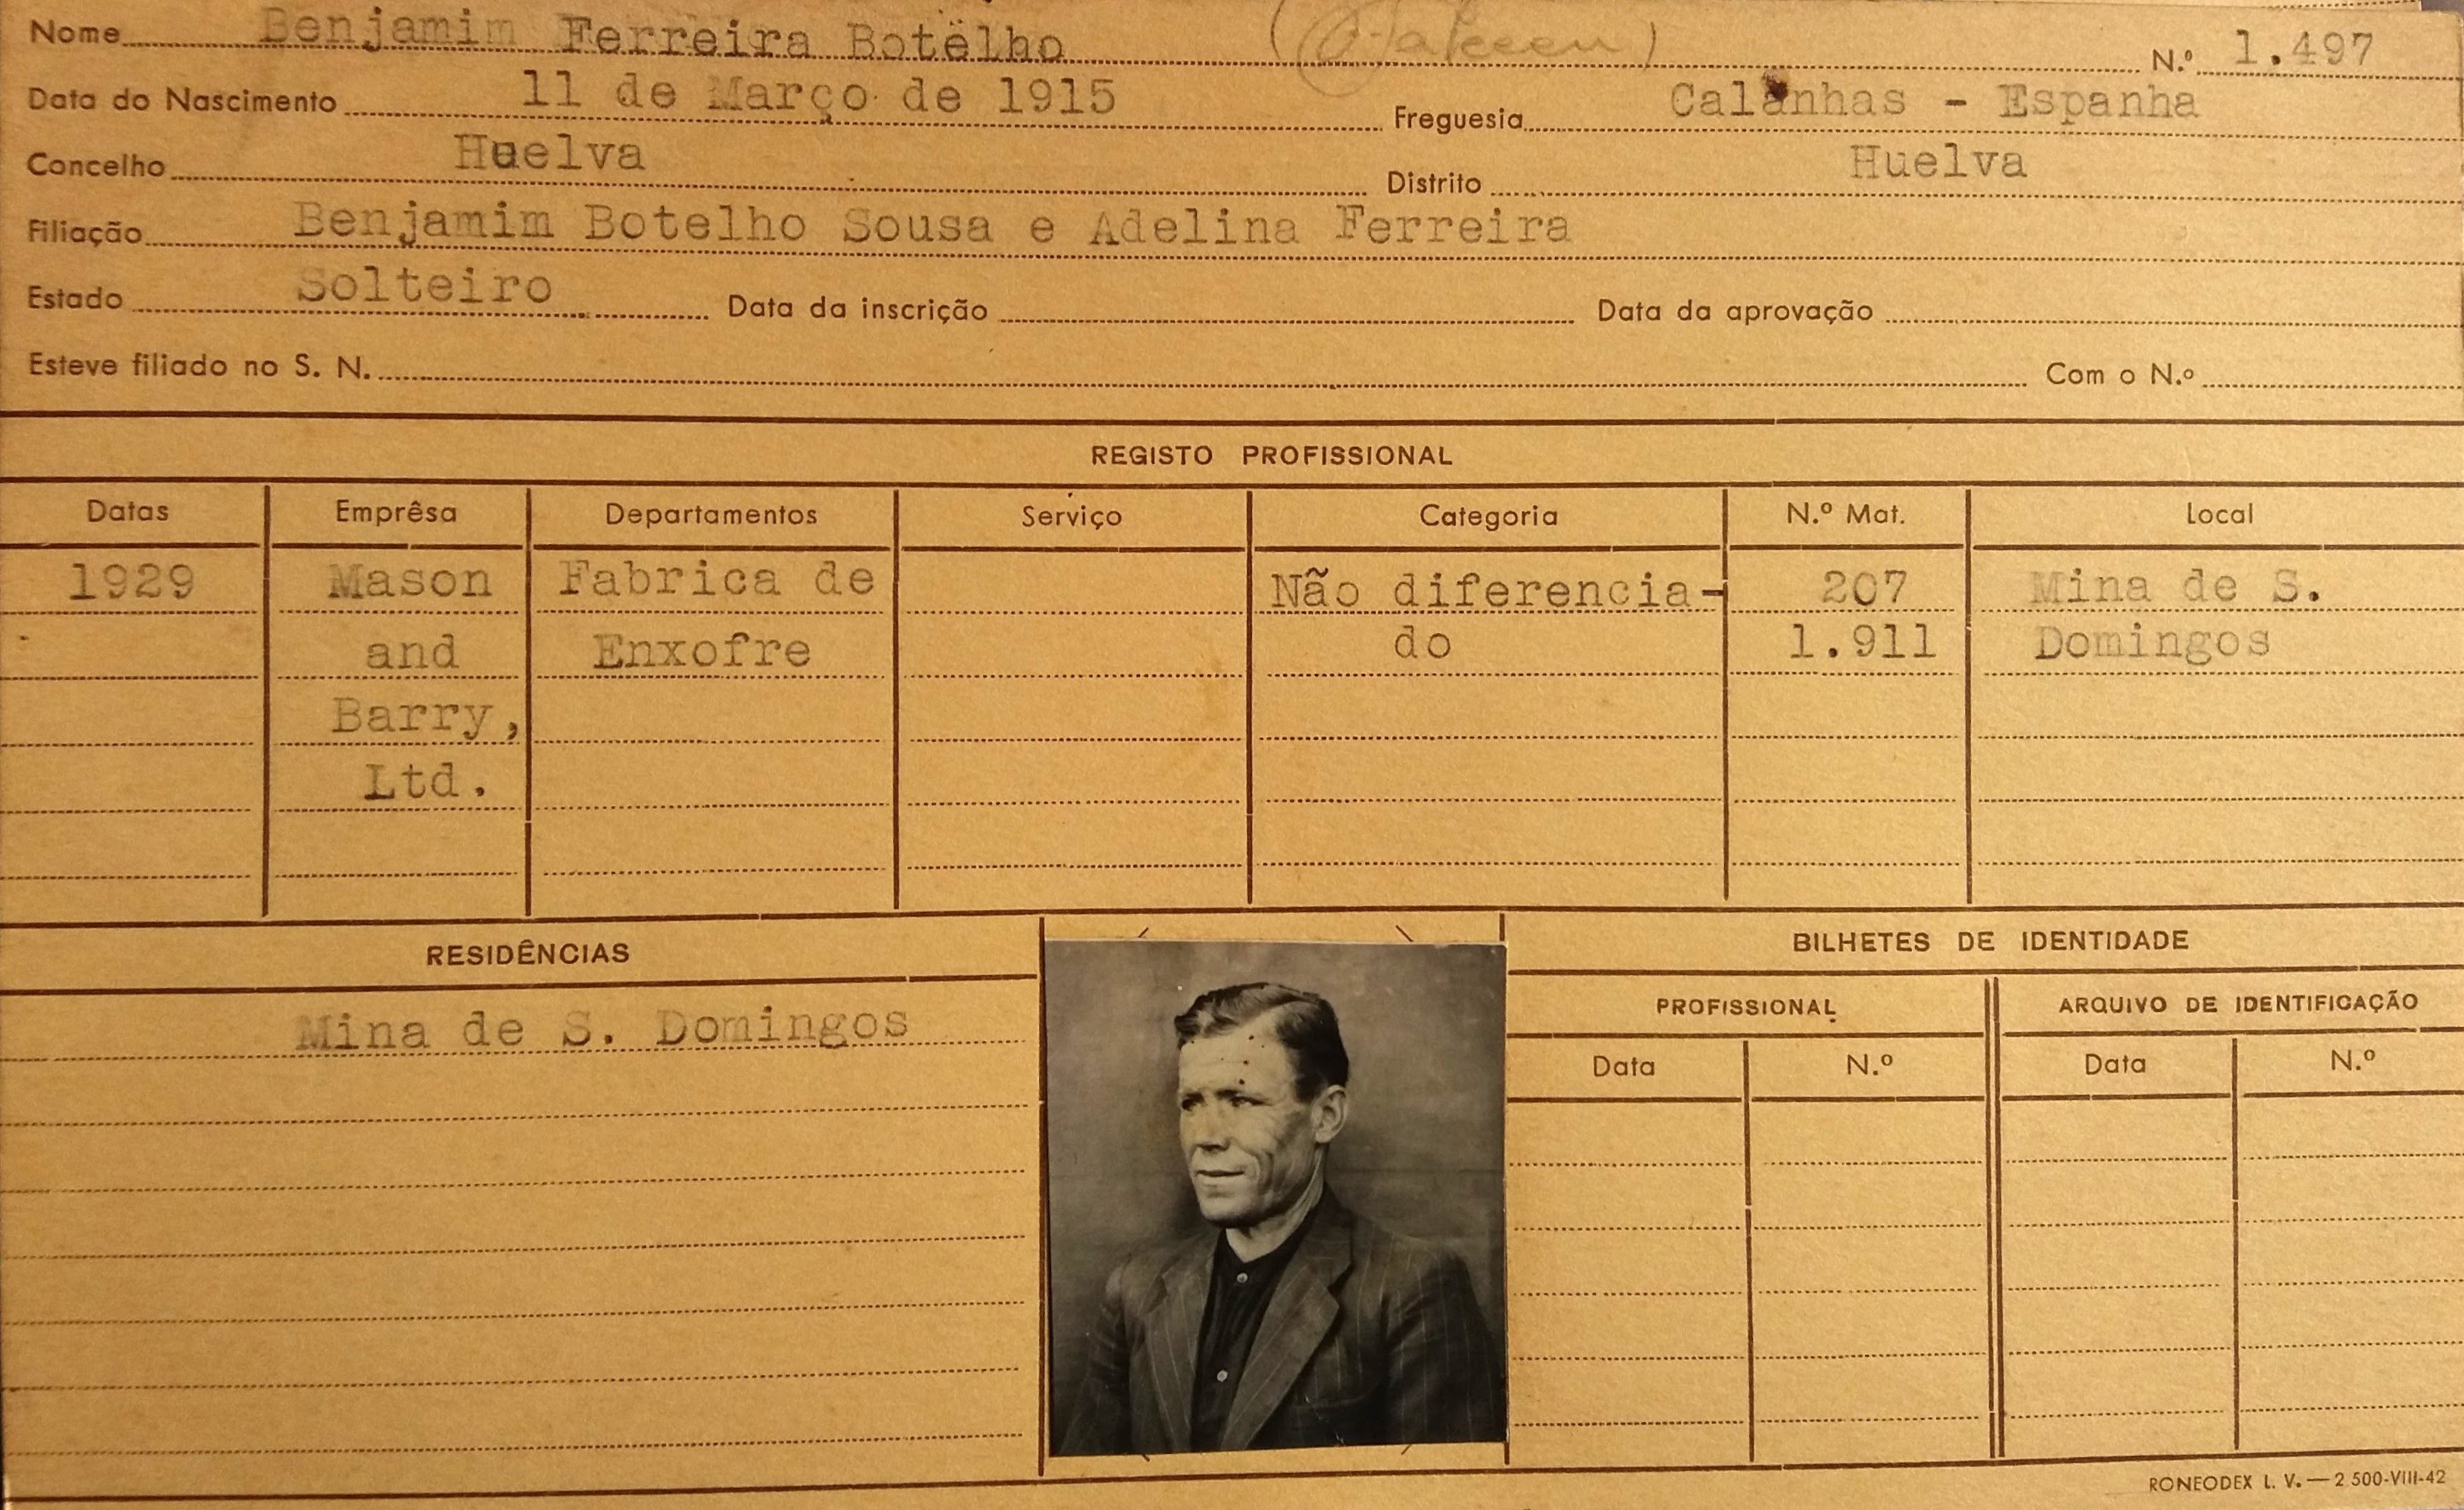 Nome Benjamim Ferreira Botelho N.º 1.497
Data do Nascimento 11 de Março de 1915 Freguesia Calanhas - Espanha
Concelho Huelva Distrito Huelva
Filiação Benjamim Botelho Sousa e Adelina Ferreira
Estado Solteiro Data da inscrição Data da aprovação
Esteve filiado no S. N. Com o N.º
REGISTO PROFISSIONAL
Datas Emprêsa Departamentos Serviço Categoria N.º Mat. Local
1929 Mason Fabrica de Não diferencia- 207 Mina de S.
and Enxofre do 1.911 Domingos
Barry,
Ltd.
RESIDÊNCIAS
Mina de S. Domingos
BILHETES DE IDENTIDADE
PROFISSIONAL ARQUIVO DE IDENTIFICAÇÃO
Data N.º Data N.º
RONEODEX L. V. — 2 500-VIII-42